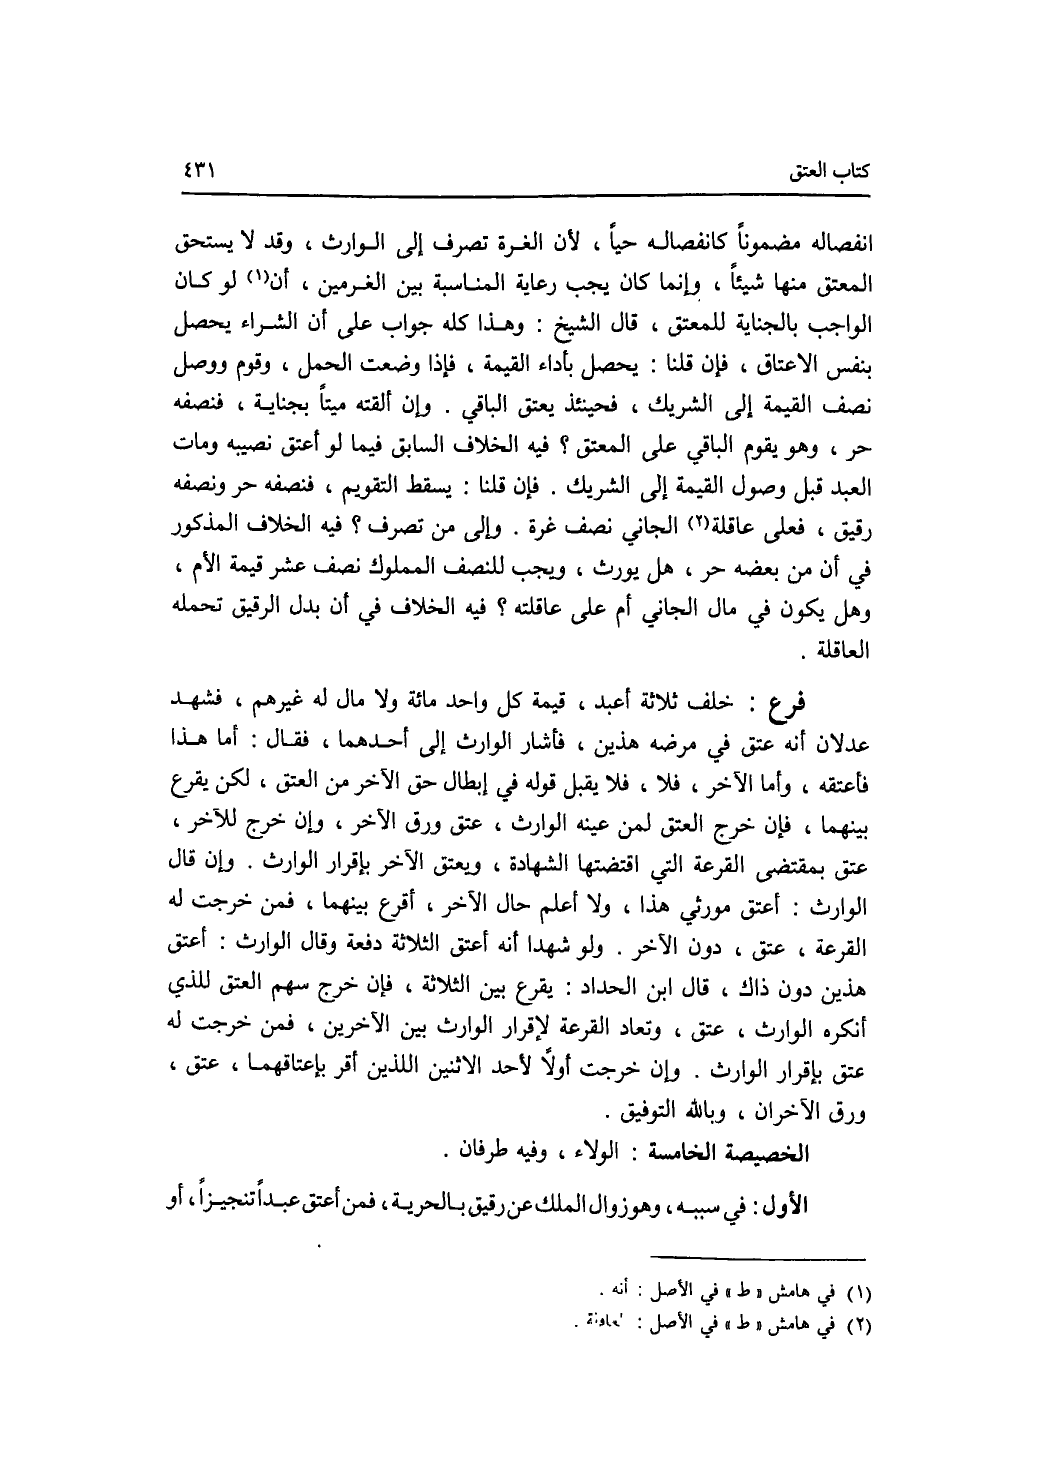 كتاب العتق ٤٣١
انفصاله مضموناً كانفصاله حياً ، لأن الغرة تصرف إلى الوارث ، وقد لا يستحق
المعتق منها شيئاً ، وإنما كان يجب رعاية المناسبة بين الغرمين ، أن(١) لو كان
الواجب بالجناية للمعتق ، قال الشيخ : وهذا كله جواب على أن الشراء يحصل
بنفس الاعتاق ، فإن قلنا : يحصل بأداء القيمة ، فإذا وضعت الحمل ، وقوم ووصل
نصف القيمة إلى الشريك ، فحينئذ يعتق الباقي . وإن ألقته ميتاً بجناية ، فنصفه
حر ، وهو يقوم الباقي على المعتق ؟ فيه الخلاف السابق فيما لو أعتق نصيبه ومات
العبد قبل وصول القيمة إلى الشريك . فإن قلنا : يسقط التقويم ، فنصفه حر ونصفه
رقيق ، فعلى عاقلة(٢) الجاني نصف غرة . وإلى من تصرف ؟ فيه الخلاف المذكور
في أن من بعضه حر ، هل يورث ، ويجب للنصف المملوك نصف عشر قيمة الأم ،
وهل يكون في مال الجاني أم على عاقلته ؟ فيه الخلاف في أن بدل الرقيق تحمله
العاقلة .
فرع : خلف ثلاثة أعبد ، قيمة كل واحد مائة ولا مال له غيرهم ، فشهد
عدلان أنه عتق في مرضه هذين ، فأشار الوارث إلى أحدهما ، فقال : أما هذا
فأعتقه ، وأما الآخر ، فلا ، فلا يقبل قوله في إبطال حق الآخر من العتق ، لكن يقرع
بينهما ، فإن خرج العتق لمن عينه الوارث ، عتق ورق الآخر ، وإن خرج للآخر ،
عتق بمقتضى القرعة التي اقتضتها الشهادة ، ويعتق الآخر بإقرار الوارث . وإن قال
الوارث : أعتق مورثي هذا ، ولا أعلم حال الآخر ، أقرع بينهما ، فمن خرجت له
القرعة ، عتق ، دون الآخر . ولو شهدا أنه أعتق الثلاثة دفعة وقال الوارث : أعتق
هذين دون ذاك ، قال ابن الحداد : يقرع بين الثلاثة ، فإن خرج سهم العتق للذي
أنكره الوارث ، عتق ، وتعاد القرعة لإقرار الوارث بين الآخرين ، فمن خرجت له
عتق بإقرار الوارث . وإن خرجت أولاً لأحد الاثنين اللذين أقر بإعتاقهما ، عتق ،
ورق الآخران ، وبالله التوفيق .
الخصيصة الخامسة : الولاء ، وفيه طرفان .
الأول : في سببه ، وهو زوال الملك عن رقيق بالحرية ، فمن أعتق عبداً تنجيزاً ، أو
(١) في هامش « ط » في الأصل : أنه .
(٢) في هامش « ط » في الأصل :